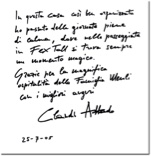 In questa casa così ben organizzata
ho passato delle giornate piene
di calma, e dove nelle passeggiate
in Fex Tal si trova sempre
un momento magico.
Grazie per la magnifica
ospitalità della Famiglia
con i migliori auguri
Claudio Abbado
25-7-05